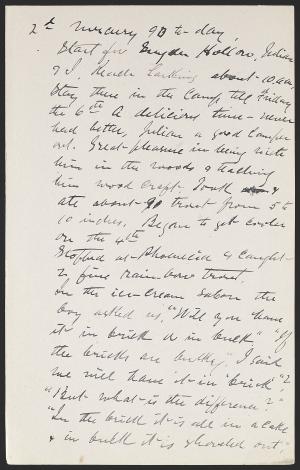 2d mercury 90 to-day,
Start for Snyder Hollow, Julian
& I, Hiram Larkins about 10 a.m.
Stay there in the Camp till Friday
the 6th A delicious time - never
had better, Julian a good camper
out. Great pleasure in being with
him in the woods & teaching
him wood craft. Took &
ate about 90 trout from 5 to
10 inches. Began to get cooler
on the 4th
Stopped at Phoenicia & caught
2 fine rain-bow trout.
In the ice-cream saloon the
boy asked us, "Will you have
it in brick or in bulk" "If
the bricks are bulky," I said
we will have it in "brick"
"But what is the difference?"
"In the brick it is all in a cake
& in bulk it is shoveled out."